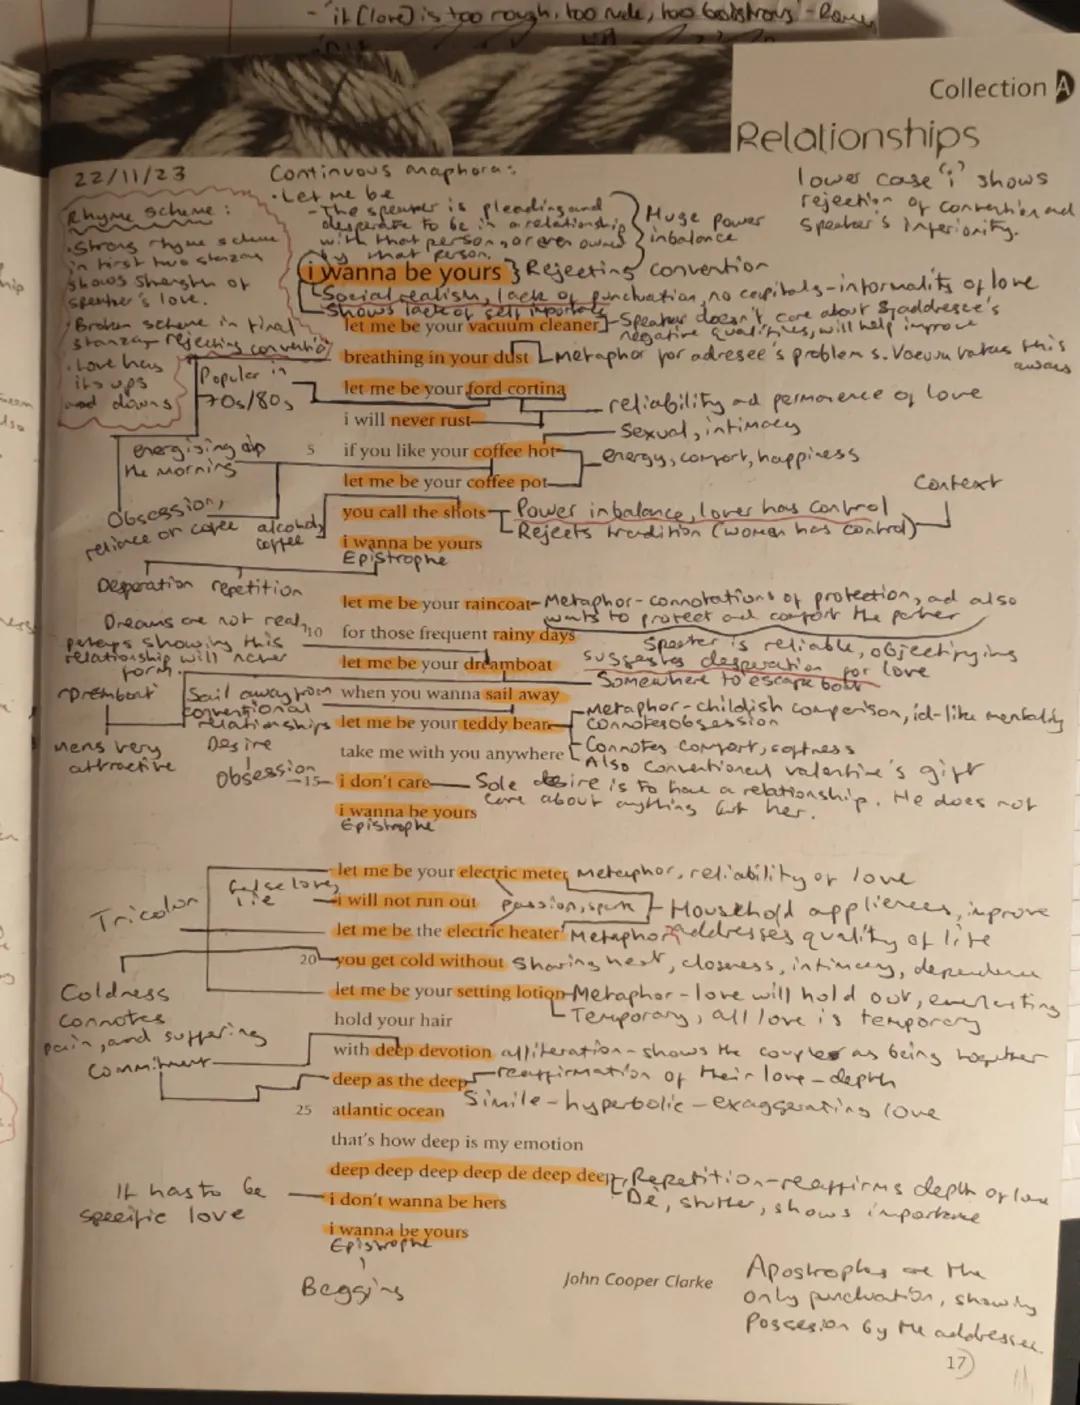 - 'it (love) is too rough, too rude, too boistrous' - Romeo
Collection A
Relationships
22/11/23
Continuous anaphora:
• Let me be
- The speaker is pleading and
desperate to be in a relationship
with that person, or even owned
by that person.
Huge power
inbalance
lower case 'i' shows
rejection of convention and
speaker's inferiority.
Rhyme scheme:
• Strong rhyme scheme
in first two stanzas
shows strength of
speaker's love.
• Broken scheme in final
stanza, rejecting convention
• Love has
its ups
and downs
i wanna be yours } Rejecting convention
Social realism, lack of punctuation, no capitals - informality of love
Shows lack of self importance
let me be your vacuum cleaner - Speaker doesn't care about addresee's
negative qualities, will help improve
breathing in your dust Metaphor for adresee's problems. Vacuum takes this
away
Popular in
70s/80s
let me be your ford cortina
reliability and permanence of love
i will never rust
Sexual, intimacy
energising in
the morning
5 if you like your coffee hot
energy, comfort, happiness
let me be your coffee pot
Context
Obsession,
relience or coffee
alcohol,
coffee
you call the shots Power inbalance, lover has control
Rejects tradition (woman has control)
i wanna be yours
Epistrophe
Desperation repetition
let me be your raincoat - Metaphor - connotations of protection, and also
wants to protect and comfort the partner
Dreams are not real,
perhaps showing this
relationship will never
form.
10 for those frequent rainy days
Speaker is reliable, objectifying
let me be your dreamboat
suggests desperation for love
Somewhere to escape boat
Dreamboat
means very
attractive
Sail away from
conventional
relationships
when you wanna sail away
let me be your teddy bear
Metaphor - childish comparison, id-like mentality
Connotes obsession
Desire
Obsession
take me with you anywhere
Connotes comfort, softness
Also conventional valentine's gift
15 i don't care Sole desire is to have a relationship. He does not
care about anything but her.
i wanna be yours
Epistrophe
let me be your electric meter Metaphor, reliability of love
Tricolon
false love,
lie
i will not run out passion, spark Household appliences, improve
let me be the electric heater Metaphor addresses quality of life
20 you get cold without Sharing heat, closeness, intimacy, dependence
Coldness
connotes
pain, and suffering
let me be your setting lotion Metaphor - love will hold out, everlasting
Temporary, all love is temporary
hold your hair
Commitment
with deep devotion alliteration - shows the couple as being together
deep as the deep reaffirmation of their love - depth
Simile - hyperbolic - exaggerating love
25 atlantic ocean
that's how deep is my emotion
deep deep deep deep de deep deep Repetition - reaffirms depth of love
De, stutter, shows importance
It has to be
specific love
i don't wanna be hers
i wanna be yours
Epistrophe
Begging
John Cooper Clarke
Apostrophes are the
only punctuation, showing
possession by the addressee.
17